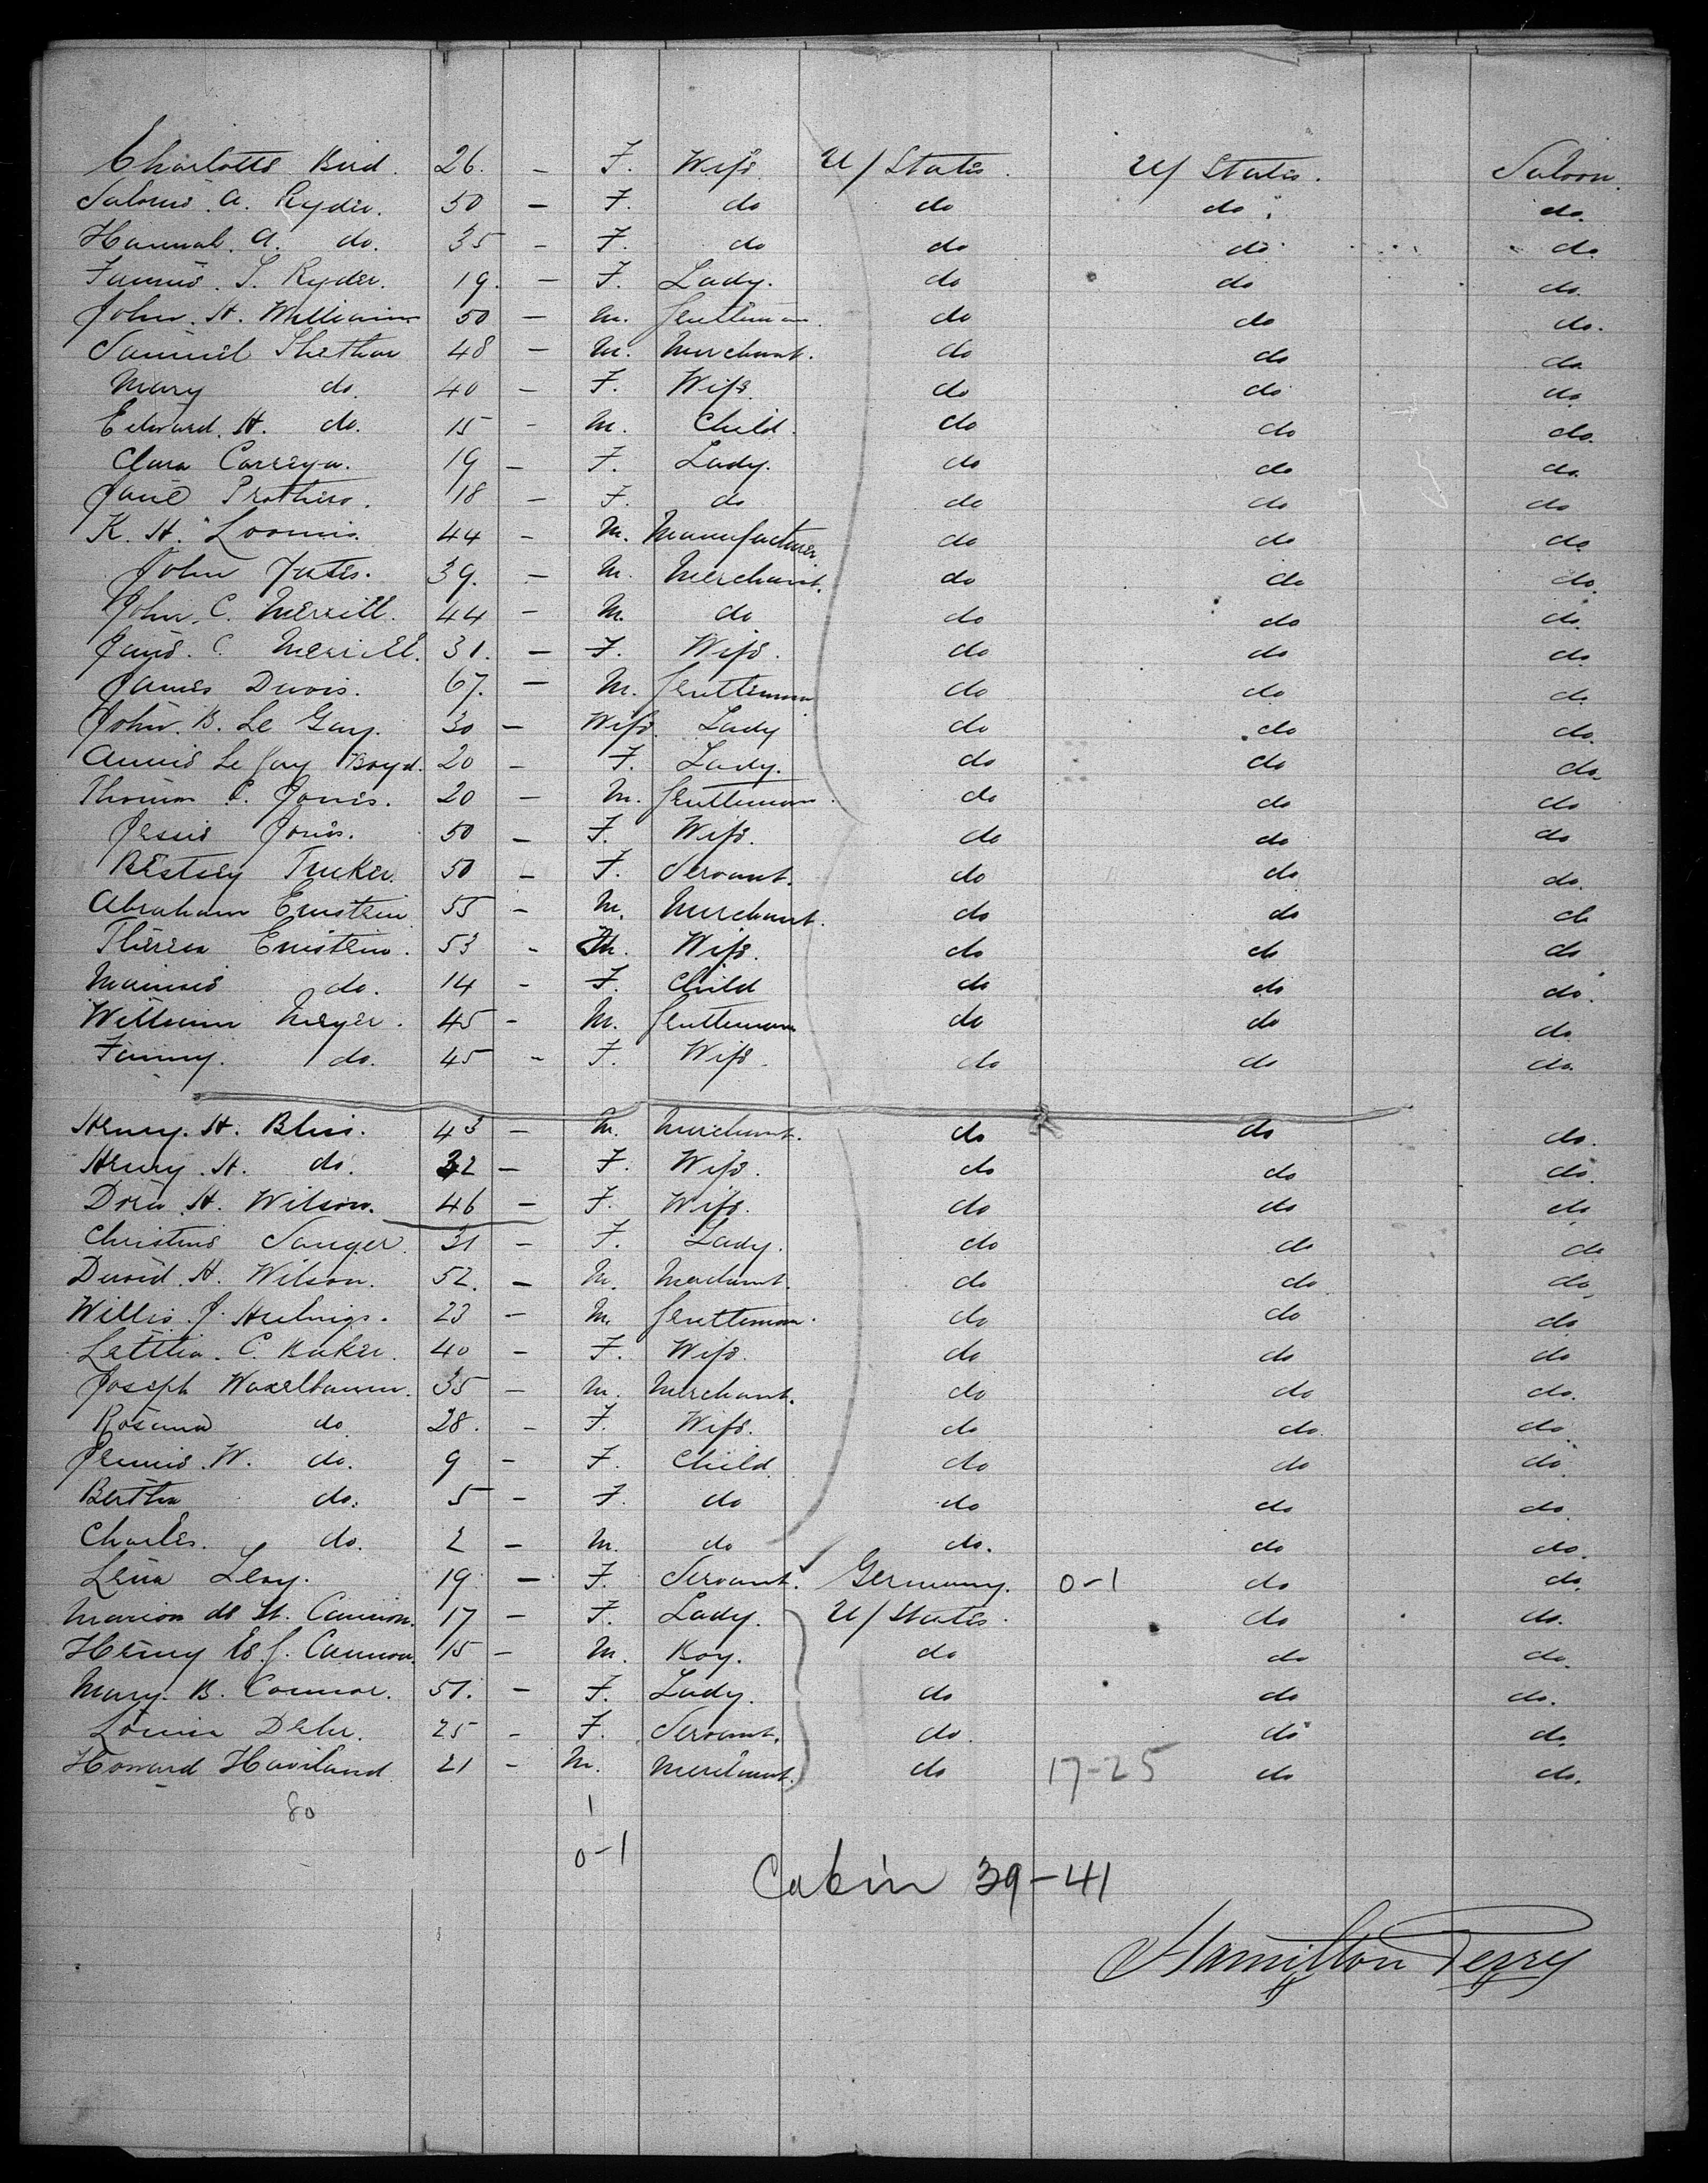 Charlotte Bird. 26. - F. Wife. U/States. U/States. Saloon.
Salome. A. Ryder. 50 - F. do do do do.
Hannah. A. do. 35 - F. do do do do
Fannie. S. Ryder. 19. - F. Lady. do do do.
John. H. William 50 - M. Gentleman. do do do.
Samuel Shethar 48 - M. Merchant. do do do.
Mary do. 40 - F. Wife. do do do.
Edward. H. do. 15 - M. Child. do do do.
Clara 19 - F. Lady. do do do.
Jane Prothero. 18 - F. do do do do
K. H. Loomis. 44 - M. Manufacturer. do do do.
John Yates. 39. - M. Merchant. do do do.
John. C. Merrill. 44 - M. do do do do.
C. Merrill. 31. - F. Wife. do do do
James Davis. 67. - M. Gentleman do do do.
John. B. Le Gay. 30 - Wife. Lady do do do.
Annie Le Gay Boyd. 20 - F. Lady. do do do.
Thomas C. Jones. 20 - M. Gentleman. do do do
Jessie Jones. 50 - F. Wife. do do do
Betsey Tucker. 50 - F. Servant. do do do.
Abraham Ernstein 55 - M. Merchant. do do do
Theresa Ernstein. 53 - M. Wife. do do do
Mainie do. 14 - F. Child do do do.
William Meyer. 45 - M. Gentleman do do do
Fanny. do. 45 - F. Wife. do do do.
Henry. H. Bliss. 43 - M. Merchant. do do do.
Henry. H. do. 32 - F. Wife. do do do.
Dora. H. Wilson. 46 - F. Wife. do do do
Christine Sanger. 31 - F. Lady. do do do
David. H. Wilson. 52. - M. Merchant. do do do
Willis. J. Hulings. 23 - M. Gentleman. do do do
Letitia. C. Baker. 40 - F. Wife. do do do
Joseph Waxelbaum. 35 - M. Merchant. do do do.
Rosena do 28. - F. Wife. do do. do.
Jennie. W. do. 9 - F. Child. do do do.
Bertha do. 5 - F. do do do do.
Charles. do. 2 - M. do do. do do.
Lena Levy. 19 - F. Servant. Germany. 0-1 do do.
Marion de St. Cannon. 17 - F. Lady. U/States. do do.
Henry Cannon. 15 - M. Boy. do do do.
Mary. B. Connor. 51. - F. Lady. do do do.
Louisa Dehr. 25 - F. Servant. do. do do.
Howard Haviland 21 - M. Merchant. do 17-25 do do.
80 1
0-1
Cabin 39-41
Hamilton Perry